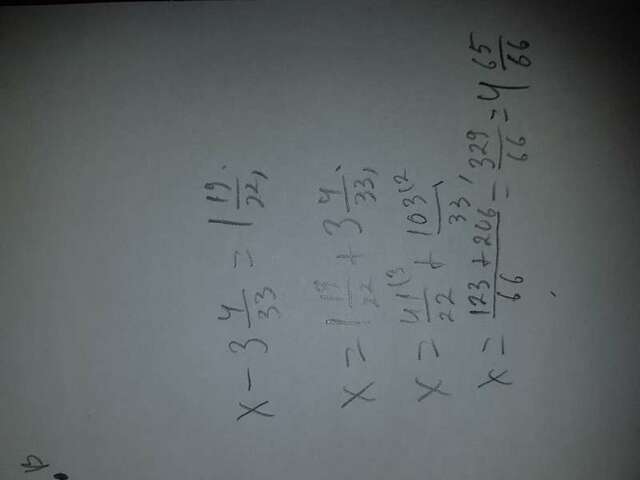 В
x - 3 4/33 = 1 19/22;
x = 1 19/22 + 3 4/33;
x = 41(3/22 + 103(2/33;
x = 123 + 206/66 = 329/66 = 4 65/66